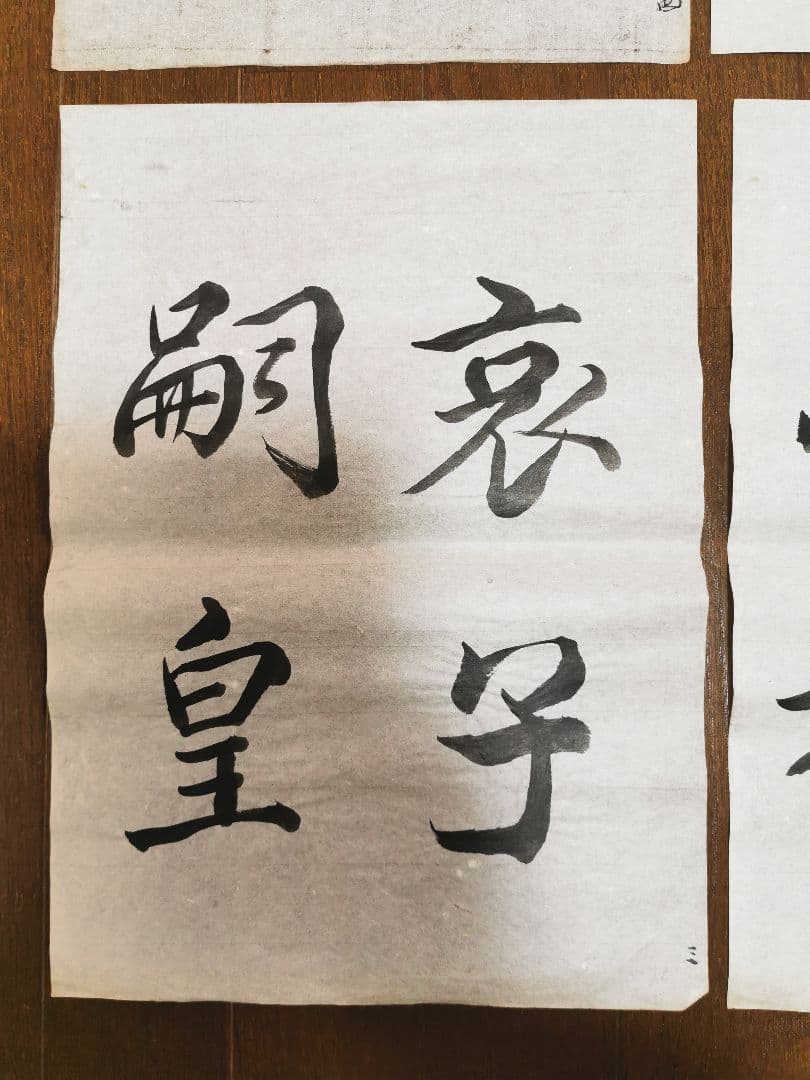 哀子
嗣皇